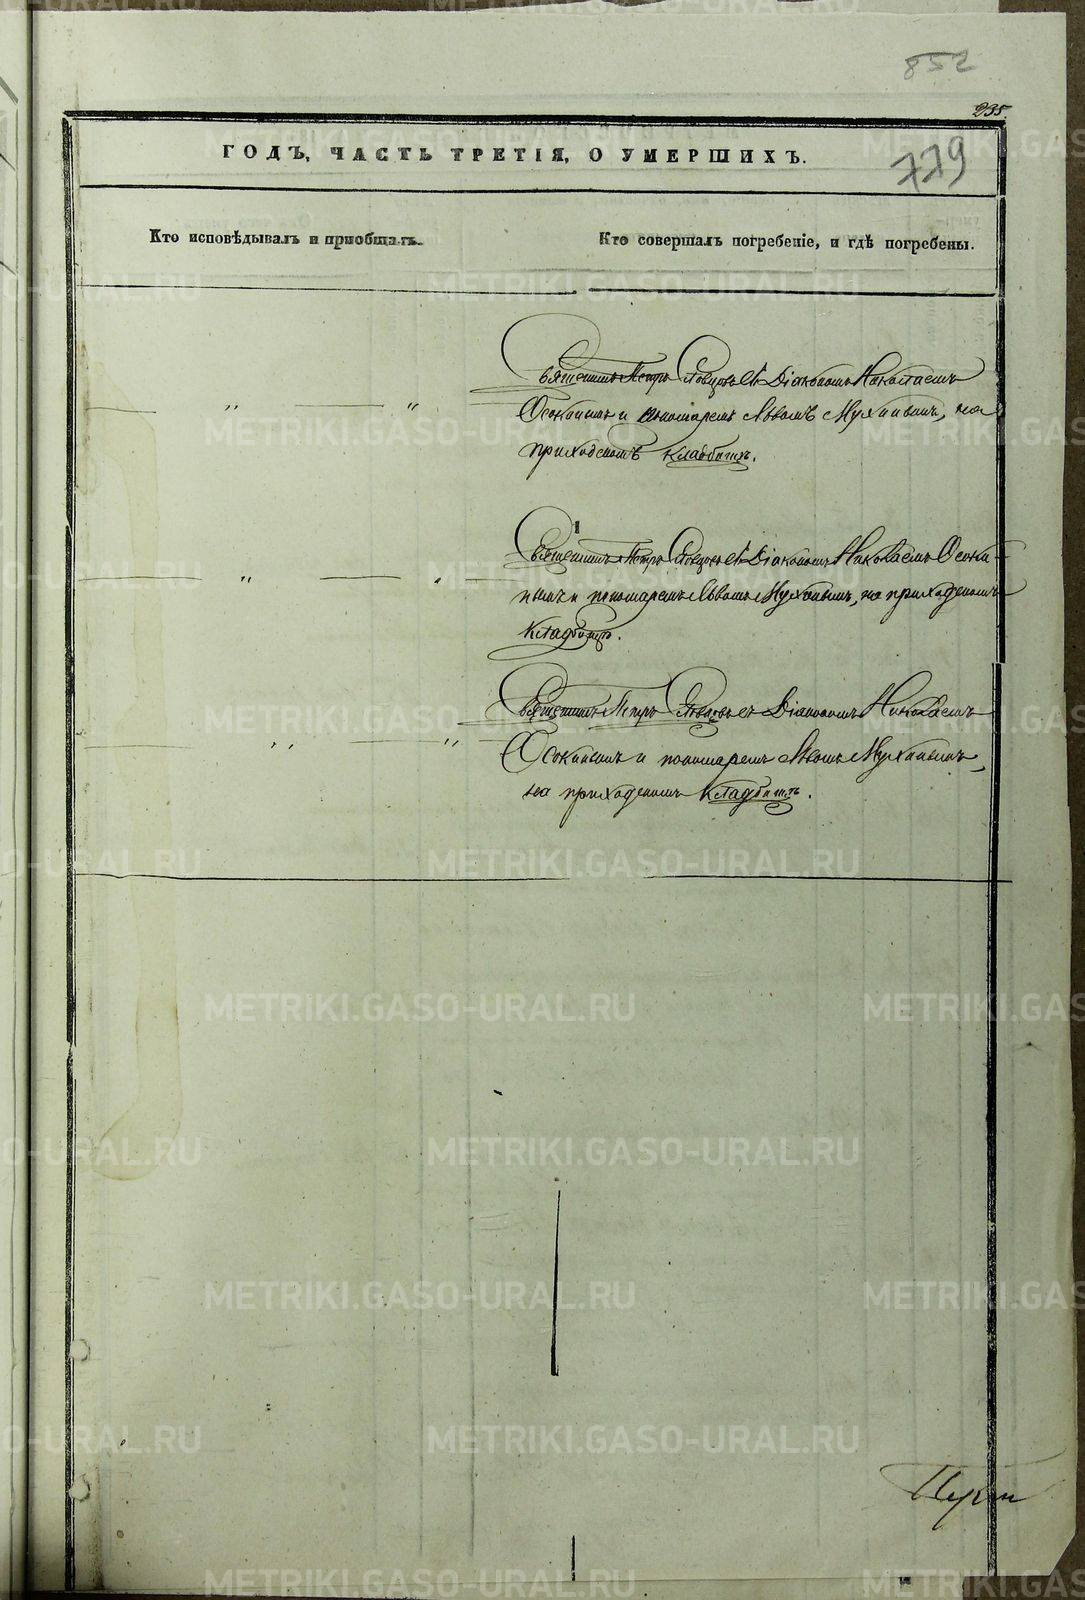 852
235.
ГОДЪ, ЧАСТЬ ТРЕТІЯ, О УМЕРШИХЪ.
779
Кто исповѣдывалъ и пріобщалъ.
Кто совершалъ погребеніе, и гдѣ погребены.
Священникъ Петръ Словцовъ съ Діакономъ Николаемъ
Осокинымъ и пономаремъ Львомъ Мухинымъ, на
приходскомъ кладбищѣ.
Священникъ Петръ Словцовъ съ Діакономъ Николаемъ Осоки-
нымъ и пономаремъ Львомъ Мухинымъ, на приходскомъ
кладбищѣ.
Священникъ Петръ Словцовъ съ Діакономъ Николаемъ
Осокинымъ и пономаремъ Львомъ Мухинымъ,
на приходскомъ кладбищѣ.
METRIKI.GASO-URAL.RU